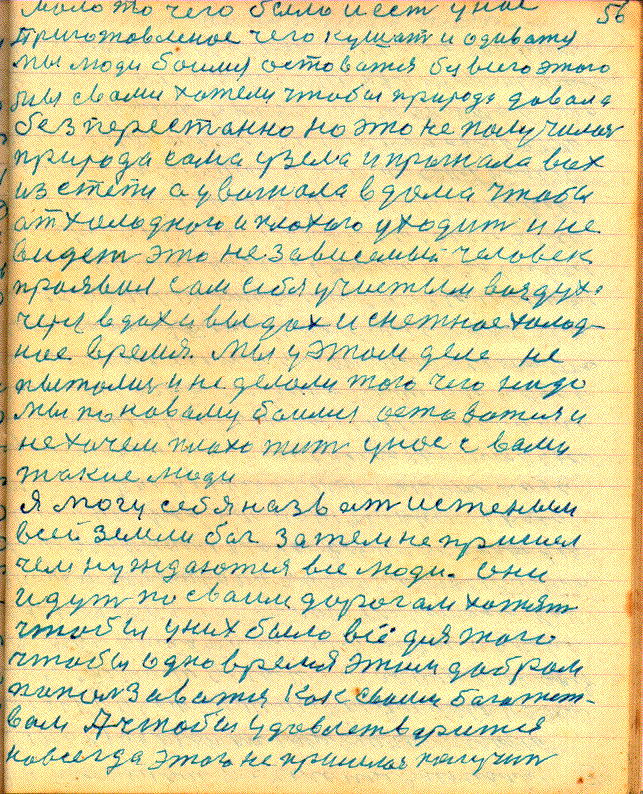 мало то чего было и ест у нас
56
приготовленое чего кушат и одиватя
мы люди боимся остоватся бы всего этого
бы с вами хотели чтобы природа давала
безперестанно но это не получилося
природа сама узела и прогнала всех
из степи а увогнала в дома чтобы
от холодного и плохого уходит и не
видет это не зависемый человек
проявил сам себя участым воздух.
через вдох и выдох и снежное холод-
ное время. Мы у этом деле не
пыталис и не делоли того чего надо
мы по новаму боимся остоватся и
не хочем плохо жит у нас с вами
такие люди
Я могу себя назват истеным
всей земли бог затем не пришел
чем нуждаются все люди. Они
идут по своим дорогам хотят
чтобы у них было всё для того
чтобы одно время этим добром
попользаватся как своим богатест-
вом А чтобы удовлетварится
навсегда этого не пришлос получит